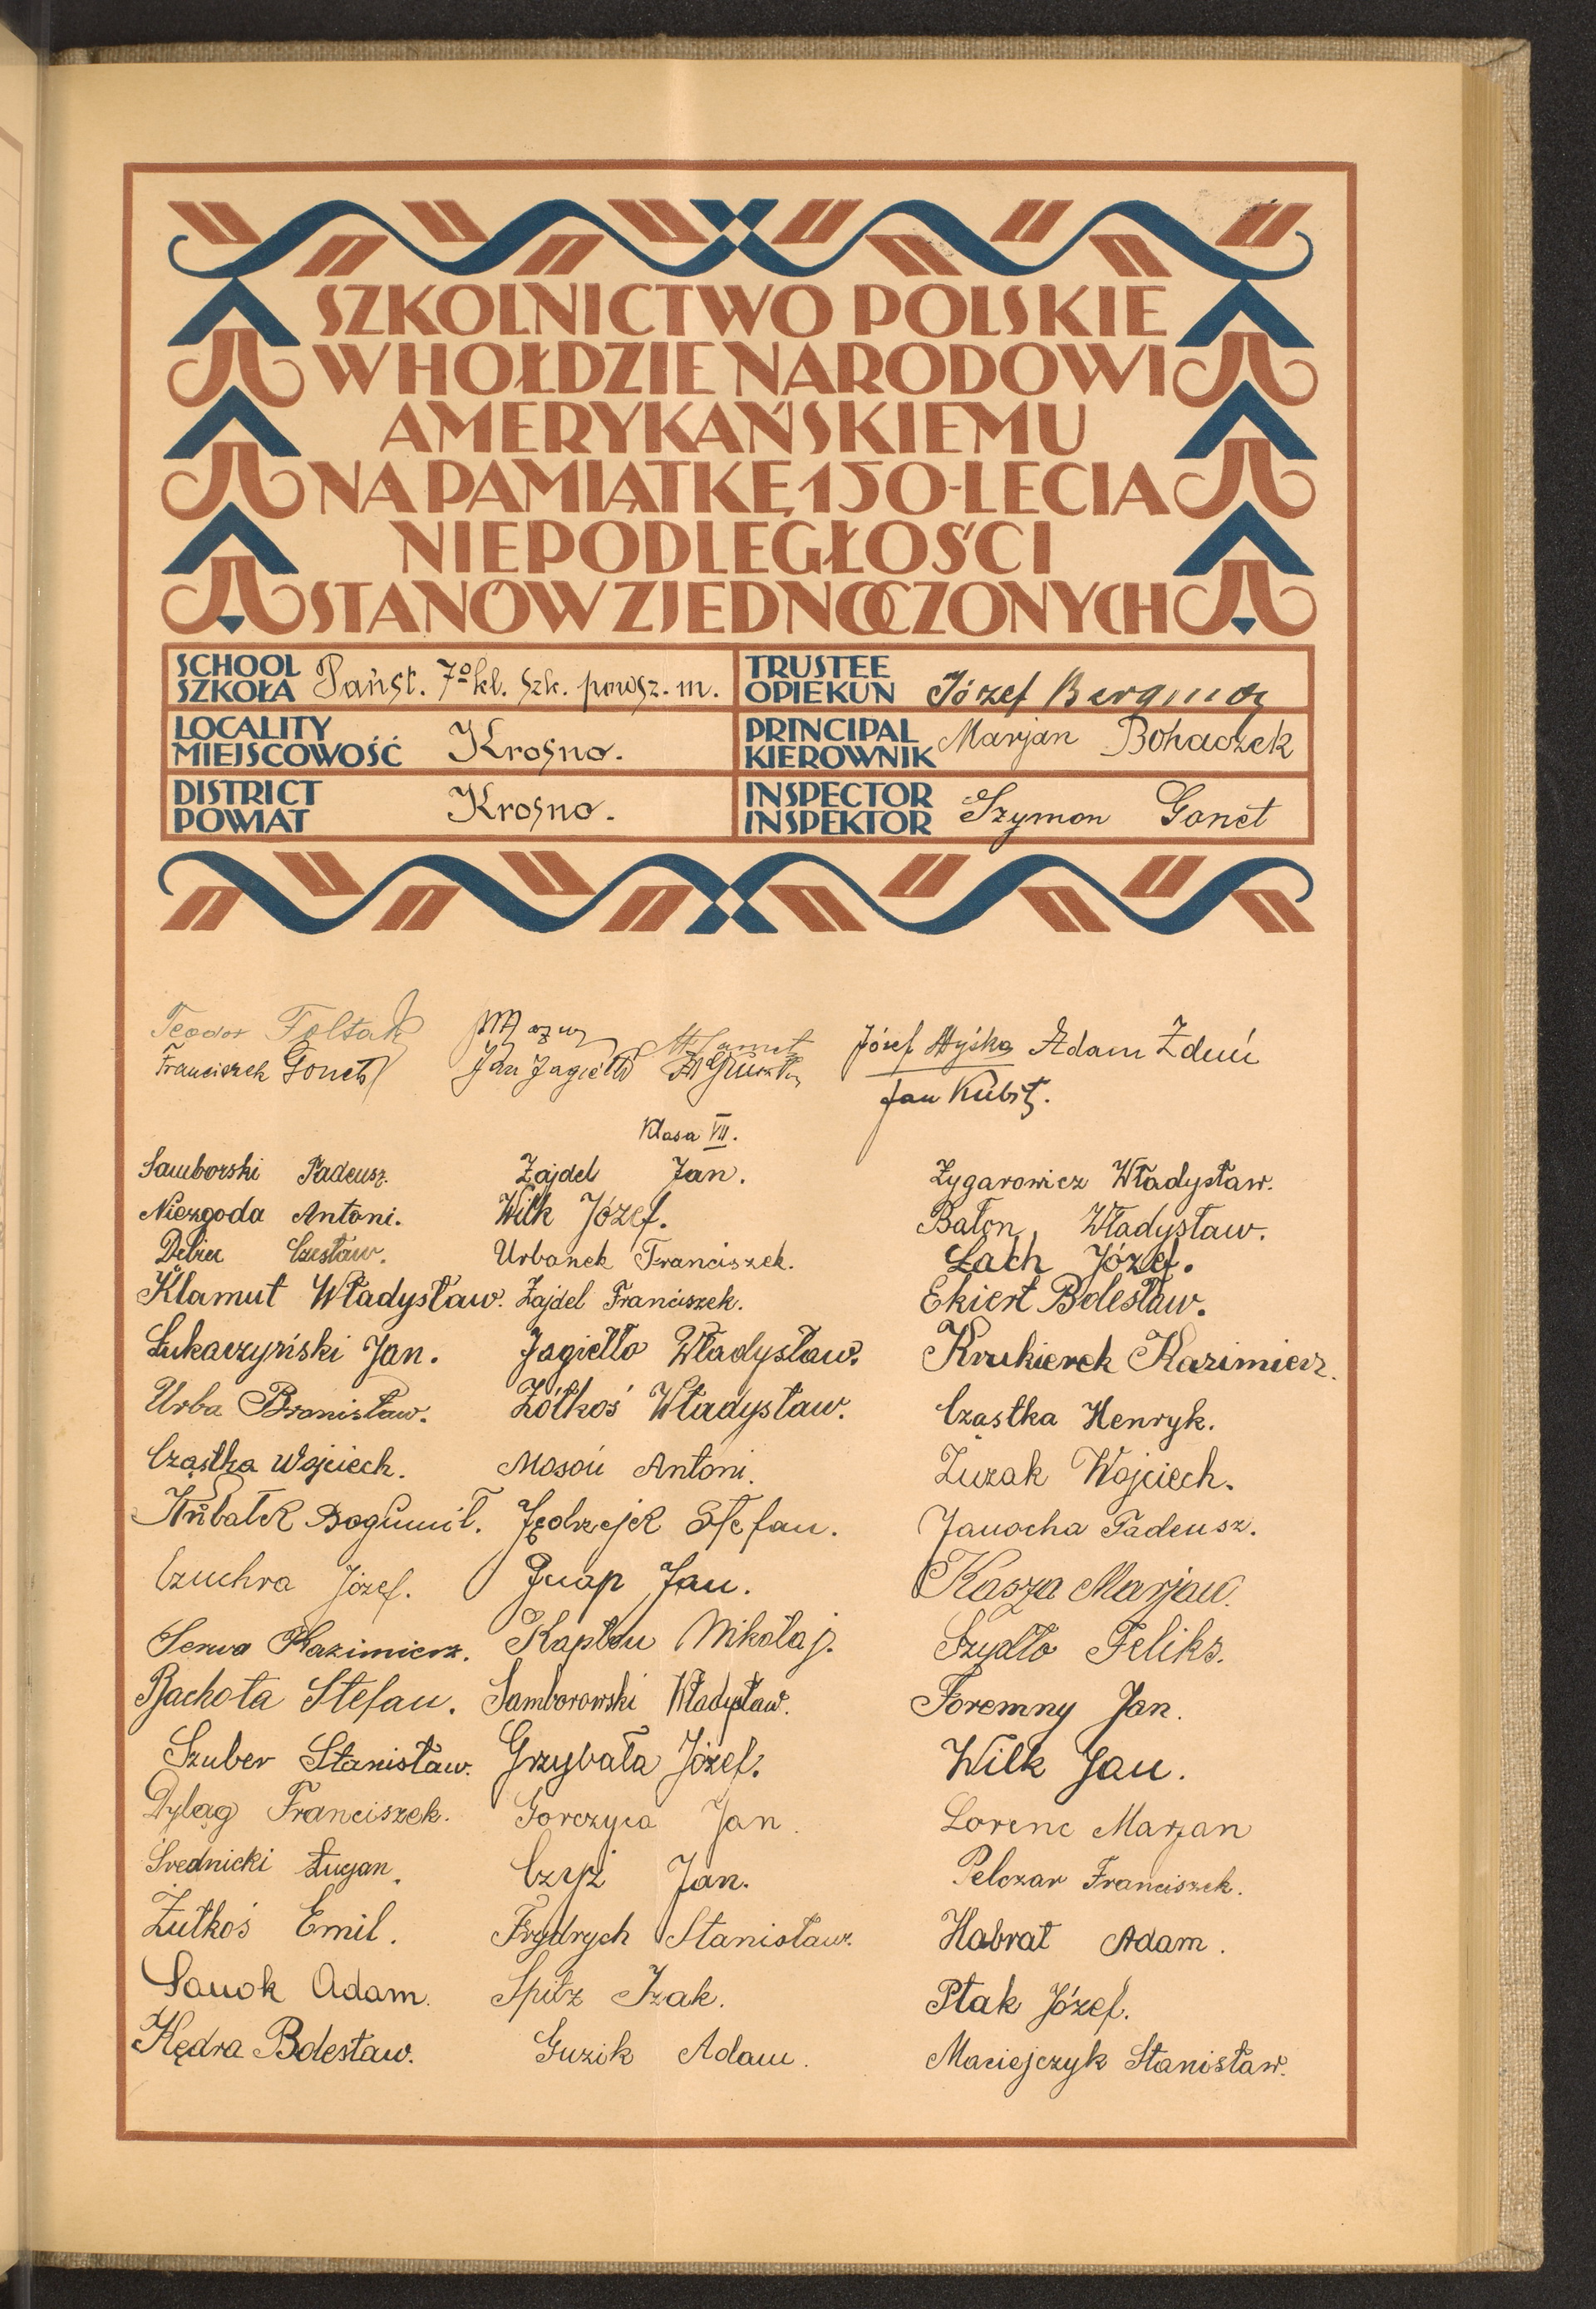 SZKOLNICTWO POLSKIE
W HOŁDZIE NARODOWI
AMERYKAŃSKIEMU
NA PAMIĄTKĘ 150-LECIA
NIEPODLEGŁOŚCI
STANÓW ZJEDNOCZONYCH
SCHOOL
SZKOŁA Państ. 7o kl. szk. powsz. m.
TRUSTEE
OPIEKUN Józef
LOCALITY
MIEJSCOWOŚĆ Krosno.
PRINCIPAL
KIEROWNIK Marjan Bohaczek
DISTRICT
POWIAT Krosno.
INSPECTOR
INSPEKTOR Szymon Gonet
Teodor Foltak Józef Adam Zduń
Franciszek Gonet Jan Jagiełło
Jan
Klasa VII.
Samborski Tadeusz. Zajdel Jan. Zygarowicz Władysław.
Niezgoda Antoni. Wilk Józef. Baton Władysław.
Czesław. Urbanek Franciszek. Lach Józef.
Klamut Władysław. Zajdel Franciszek. Ekiert Bolesław.
Łukaczyński Jan. Jagiełło Władysław. Krukierek Kazimierz.
Urba Bronisław. Żółkoś Władysław. Cząstka Henryk.
Cząstka Wojciech. Mosoń Antoni. Zuzak Wojciech.
Bogumił. Jędrzejek Stefan. Janocha Tadeusz.
Czuchra Józef. Knap Jan. Kasza Marjan.
Serwa Kazimierz. Kapłon Mikołaj. Szydło Feliks.
Bachota Stefan. Samborowski Władysław. Foremny Jan.
Szuber Stanisław. Grzybała Józef. Wilk Jan.
Dyląg Franciszek. Gorczyca Jan. Lorenc Marjan
Średnicki Czyż Jan. Pelczar Franciszek.
Żułkoś Emil. Frydrych Stanisław. Habrat Adam.
Sanok Adam. Spitz Izak. Ptak Józef.
Kędra Bolesław. Guzik Adam. Maciejczyk Stanisław.